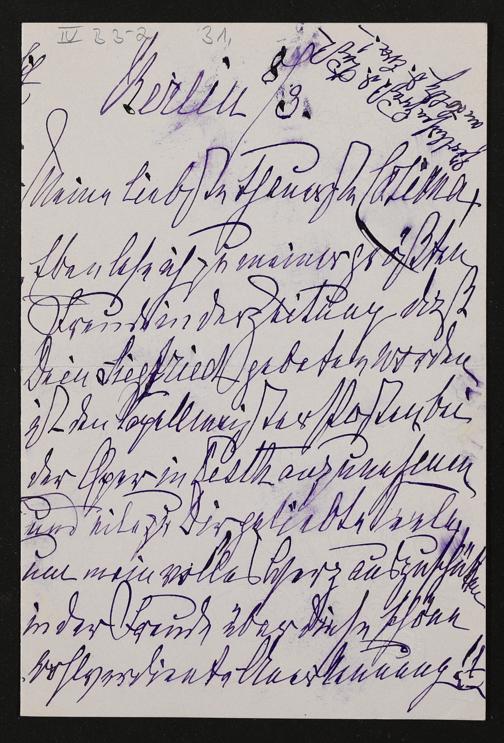 IV B 3-2 31,
Berlin 8/3.
Meine liebste theuerste Cosima,
Eben lese ich zu meiner größten
Freude in der Zeitung daß
Dein Siegfried gebeten worden
ist den Capellmeister Posten bei
der Oper in Pesth anzunehmen
und eile zu Dir geliebte
um mein volles Herz auszuschütten
in der Freude über diese schöne
wohlverdiente Anerkennung!!